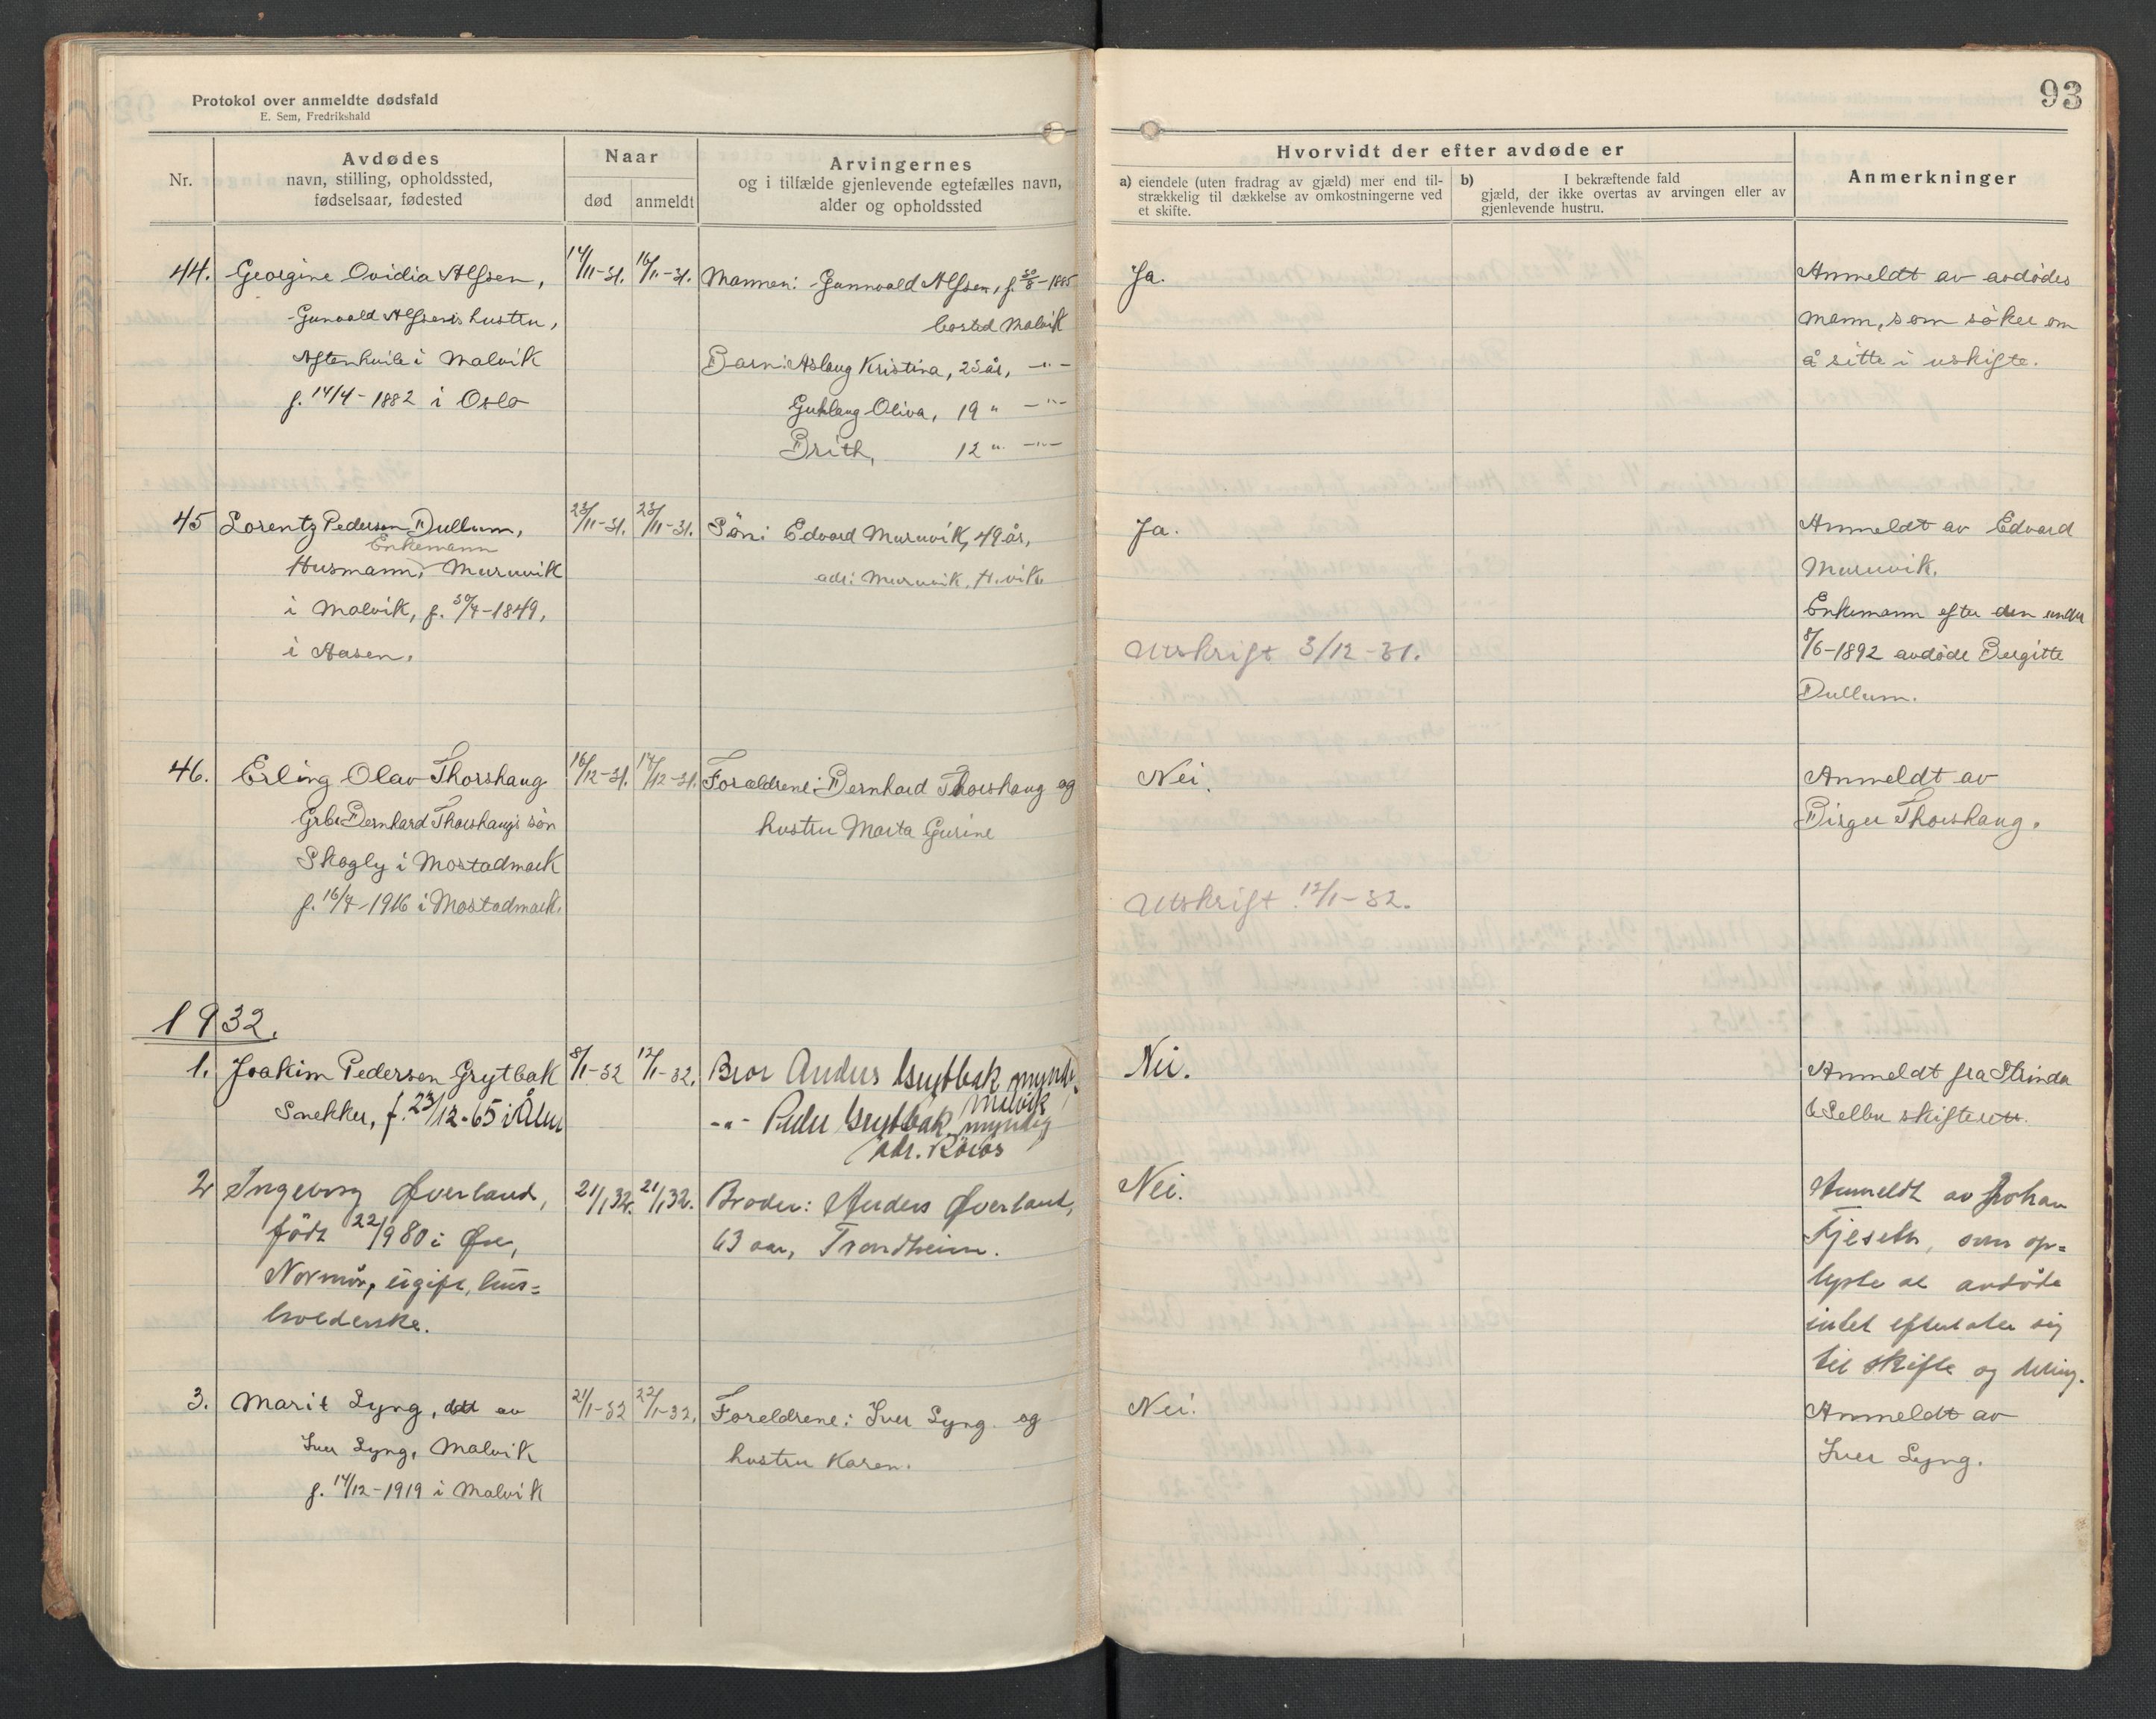 Protokol over anmeldte dødsfald
E. Sem, Fredrikshald
93
Nr.
Avdødes
navn, stilling, opholdssted,
fødselsaar, fødested
Naar
død
anmeldt
Arvingernes
og i tilfælde gjenlevende egtefælles navn,
alder og opholdssted
Hvorvidt der efter avdøde er
a) eiendele (uten fradrag av gjæld) mer end til-
strækkelig til dækkelse av omkostningerne ved
et skifte.
b) I bekræftende fald
gjæld, der ikke overtas av arvingen eller av
gjenlevende hustru.
Anmerkninger
44. Georgine Ovidia Alfsen,
Gunvald Alfsens hustru,
Aftenhvile i Malvik
f. 14/4-1882 i Oslo
14/11-31. 16/11-31.
Mannen: Gunnvald Alfsen, f. 30/8-1885
bosted Malvik
Barn: Aslaug Kristina, 23 år, -"-
Gudlaug Oliva, 19 " -"-
Brith, 12 " -"-
Ja.
Anmeldt av avdødes
mann, som søker om
å sitte i uskifte.
45 Lorentz Pedersen Dullum,
Enkemann
Husmann, Muruvik
i Malvik, f. 30/4-1849,
i Aasen.
23/11-31. 23/11-31.
Søn: Edvard Muruvik, 49 år,
adr: Muruvik, H.vik.
Ja.
Utskrift 3/12-31.
Anmeldt av Edvard
Muruvik.
Enkemann efter den under
8/6-1892 avdøde Bergitte
Dullum.
46. Erling Olav Thorshaug
Grbr Bernhard Thorshaugs søn
Skogly i Mostadmark
f. 16/4-1916 i Mostadmark.
16/12-31. 17/12-31.
Forældrene: Bernhard Thorshaug og
hustru Marta Gurine
Nei.
Utskrift 12/1-32.
Anmeldt av
Birger Thorshaug.
1932.
1. Joakim Pedersen Grytbak
Snekker, f. 23/12-65 i Ålen
8/1-32 12/1-32.
Bror Anders Grytbak myndig
Malvik
-"- Peder Grytbak myndig
adr. Röros
Nei.
Anmeldt fra Strinda
& Selbu skifterett.
2 Ingeborg Øverland,
født 22/9 80 i Øre,
Normør, ugift, hus=
holderske.
21/1 32. 21/1 32.
Broder: Anders Øverland,
63 aar, Trondheim.
Nei.
Anmeldt av Johan
Fjeseth, som op=
lyste at avdøde
intet efterlater sig
til skifte og deling.
3. Marit Lyng, dtt av
Iver Lyng, Malvik
f. 14/12-1919 i Malvik
21/1-32 22/1-32.
Foreldrene: Iver Lyng og
hustru Karen.
Nei.
Anmeldt av
Iver Lyng.